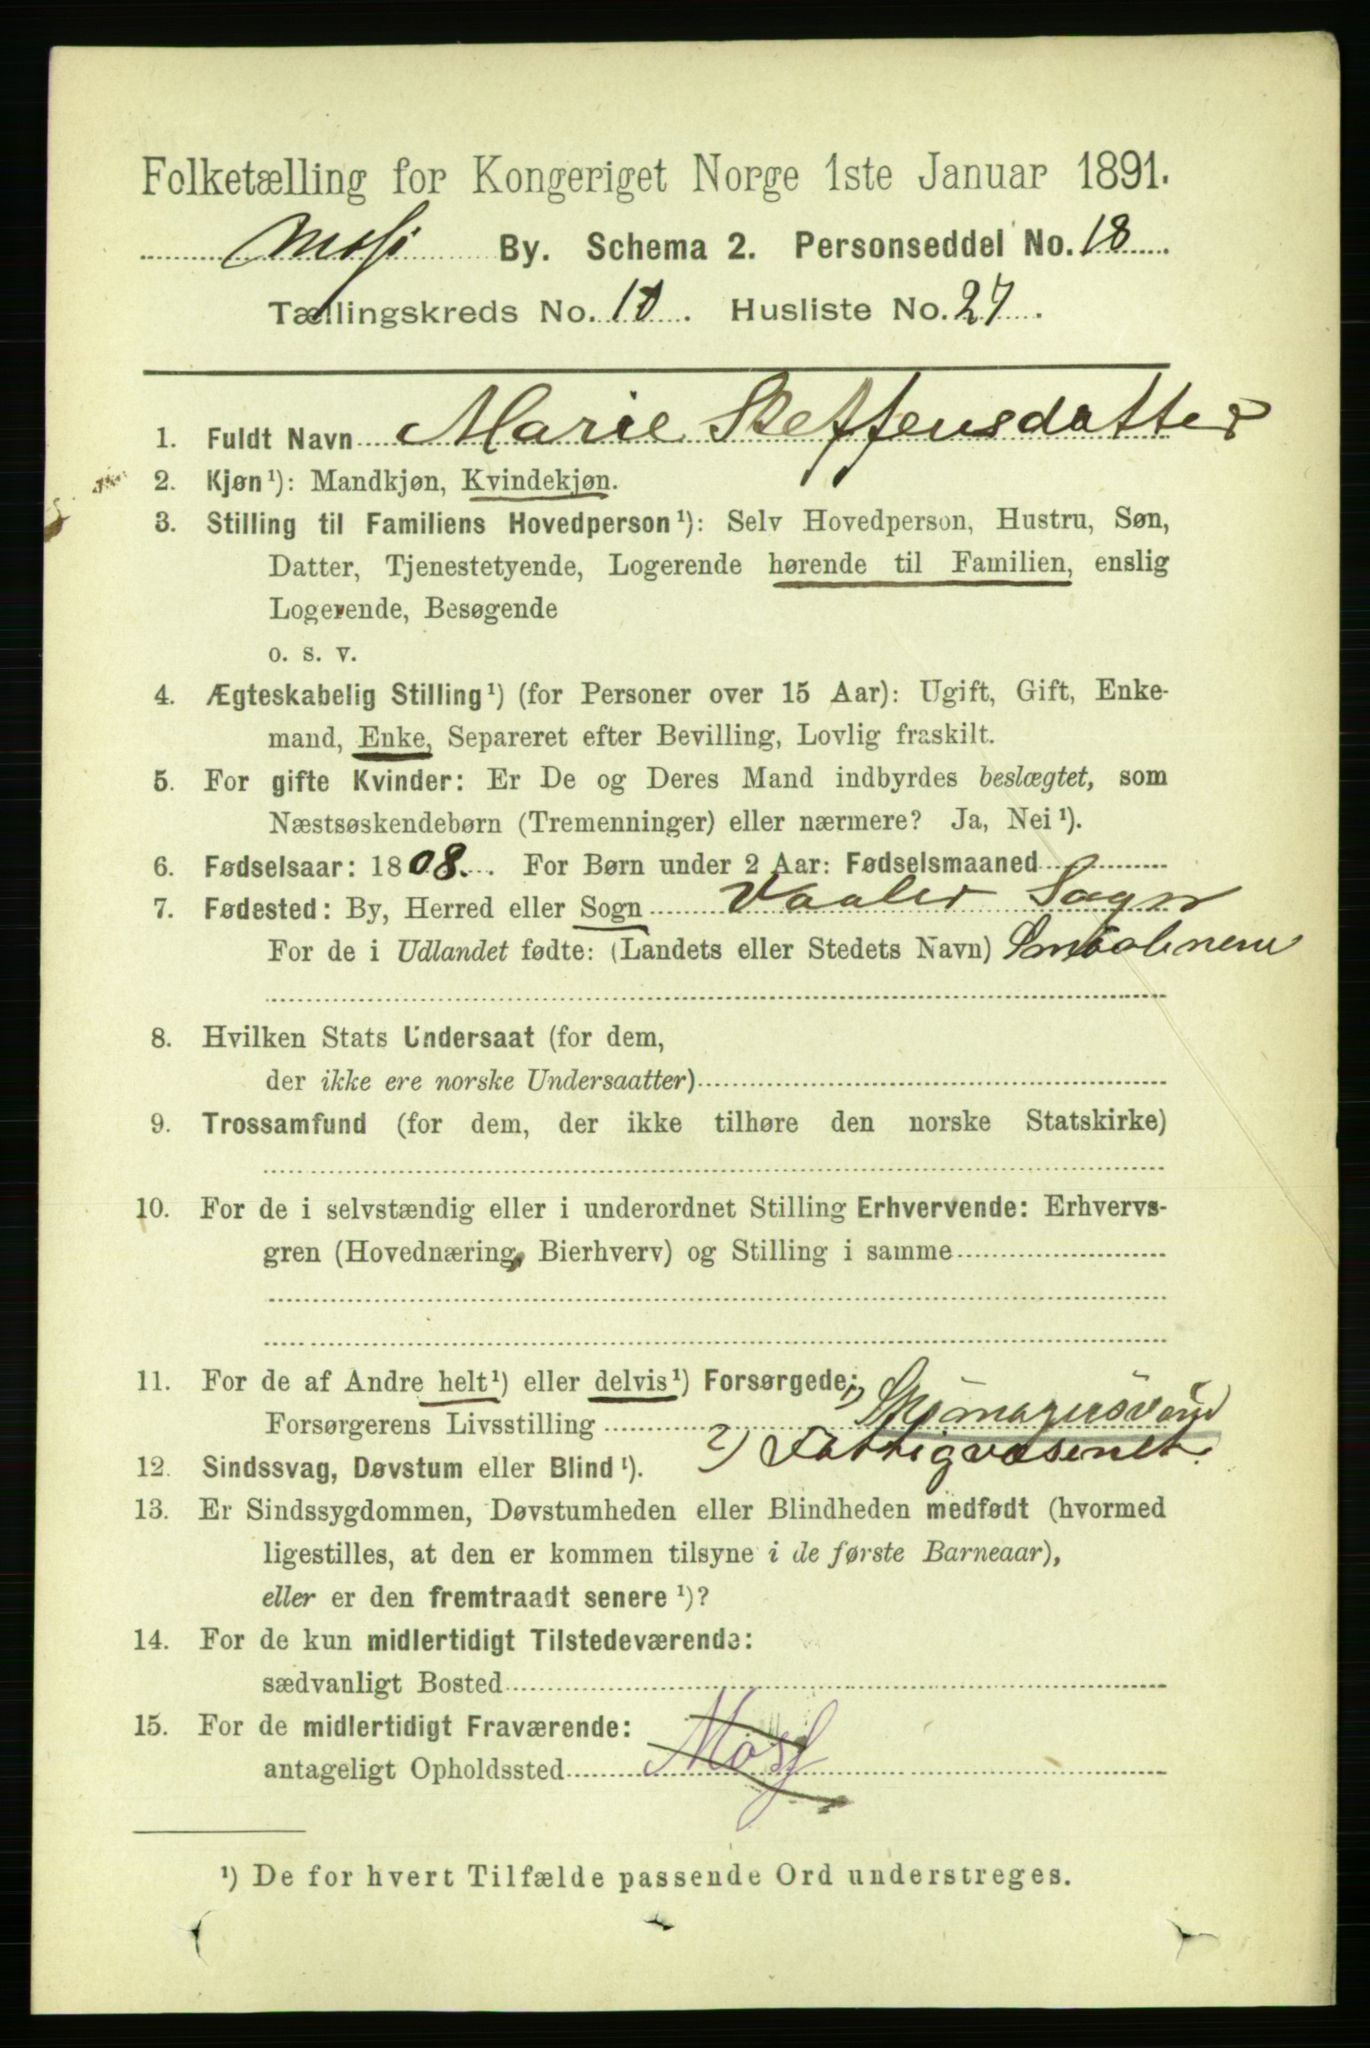 Folketælling for Kongeriget Norge 1ste Januar 1891.
Moss By. Schema 2. Personseddel No. 18
Tællingskreds No. 10. Husliste No. 27.
1. Fuldt Navn Marie Steffensdatter
2. Kjøn¹): Mandkjøn, Kvindekjøn.
3. Stilling til Familiens Hovedperson¹): Selv Hovedperson, Hustru, Søn,
Datter, Tjenestetyende, Logerende hørende til Familien, enslig
Logerende, Besøgende
o. s. v.
4. Ægteskabelig Stilling¹) (for Personer over 15 Aar): Ugift, Gift, Enke-
mand, Enke, Separeret efter Bevilling, Lovlig fraskilt.
5. For gifte Kvinder: Er De og Deres Mand indbyrdes beslægtet, som
Næstsøskendebørn (Tremenninger) eller nærmere? Ja, Nei¹).
6. Fødselsaar: 1808. For Børn under 2 Aar: Fødselsmaaned
7. Fødested: By, Herred eller Sogn Vaaler Sogn
For de i Udlandet fødte: (Landets eller Stedets Navn) Smaalenene
8. Hvilken Stats Undersaat (for dem,
der ikke ere norske Undersaatter)
9. Trossamfund (for dem, der ikke tilhøre den norske Statskirke)
10. For de i selvstændig eller i underordnet Stilling Erhvervende: Erhvervs-
gren (Hovednæring, Bierhverv) og Stilling i samme
11. For de af Andre helt¹) eller delvis¹) Forsørgede:
Forsørgerens Livsstilling 1) Skomagersvend
2) Fattigvæsenet.
12. Sindssvag, Døvstum eller Blind¹).
13. Er Sindssygdommen, Døvstumheden eller Blindheden medfødt (hvormed
ligestilles, at den er kommen tilsyne i de første Barneaar),
eller er den fremtraadt senere¹)?
14. For de kun midlertidigt Tilstedeværende:
sædvanligt Bosted
15. For de midlertidigt Fraværende:
antageligt Opholdssted Moss
¹) De for hvert Tilfælde passende Ord understreges.